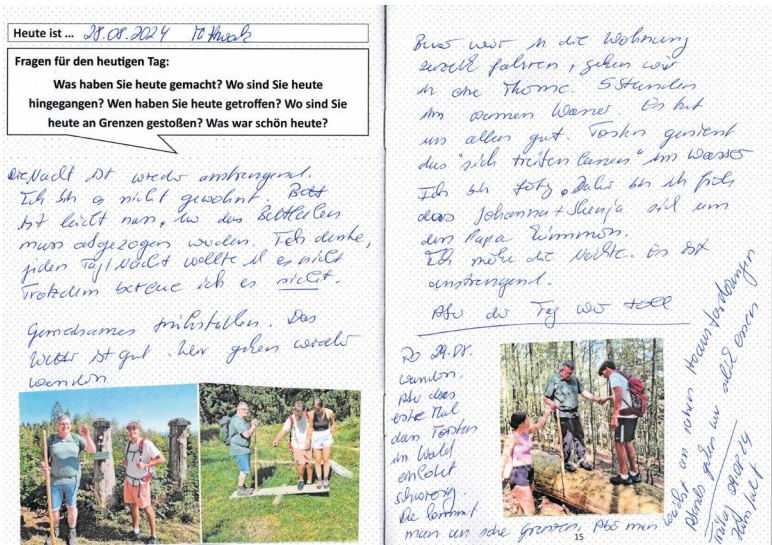 Heute ist ... 28.08.2024 Mittwoch
Fragen für den heutigen Tag:
Was haben Sie heute gemacht? Wo sind Sie heute
hingegangen? Wen haben Sie heute getroffen? Wo sind Sie
heute an Grenzen gestoßen? Was war schön heute?
Die Nacht ist wieder anstrengend.
Ich bin es nicht gewohnt. Bett
ist leicht nass, das Bettlaken
muss abgezogen werden. Ich denke,
jeden Tag/Nacht wollte ich es nicht
Trotzdem bereue ich es nicht.
Gemeinsames frühstücken. Das
Wetter ist gut. Wir gehen wieder
wandern
Bevor wir in die Wohnung
zurück fahren, gehen wir
in die Therme. 5 Stunden
im warmen Wasser. Es tut
uns allen gut. Torsten geniesst
das "sich treiben lassen" im Wasser
Ich bin fertig. Daher bin ich froh
dass Johanna + Shenja sich um
den Papa kümmern.
Ich die Nächte. Es ist
anstrengend.
Aber der Tag war toll
Do 29.08.
wandern,
Aber das
erste Mal
dass Torsten
im Wald
schwierig.
Da kommt
man an seine Grenzen. Aber man
wächst an seinen Herausforderungen
Abends gehen wir essen
Freitag 30.08.24
15